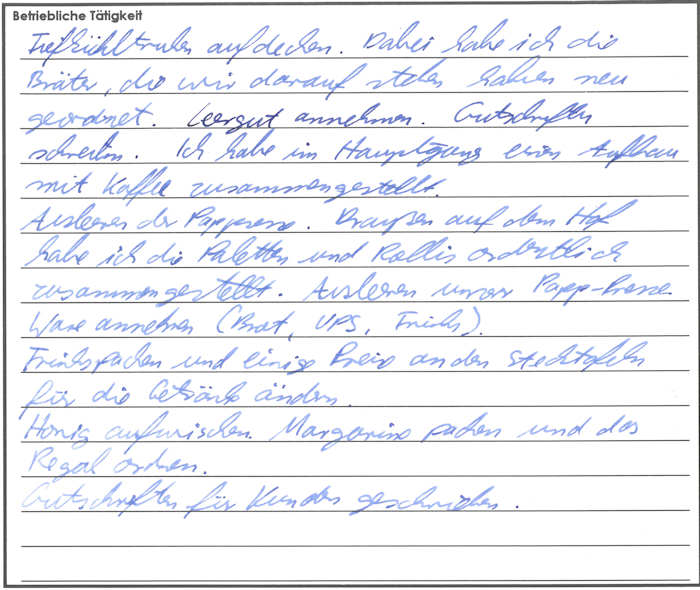 Betriebliche Tätigkeit
Tiefkühltruhen aufdecken. Dabei habe ich die
Bräter, die wir darauf stehen haben neu
geordnet. Leergut annehmen. Gutschriften
schreiben. Ich habe im Hauptgang einen Aufbau
mit Kaffee zusammengestellt.
Ausleeren der Pappresse. Draußen auf dem Hof
habe ich die Paletten und Rollis ordentlich
zusammengestellt. Ausleeren unserer Papp-Presse.
Ware annehmen (Brot, UPS, Frisch).
Frisch packen und einige Preise an den Stecktafeln
für die Getränke ändern.
Honig aufwischen. Margarine packen und das
Regal ordnen.
Gutschriften für Kunden geschrieben.